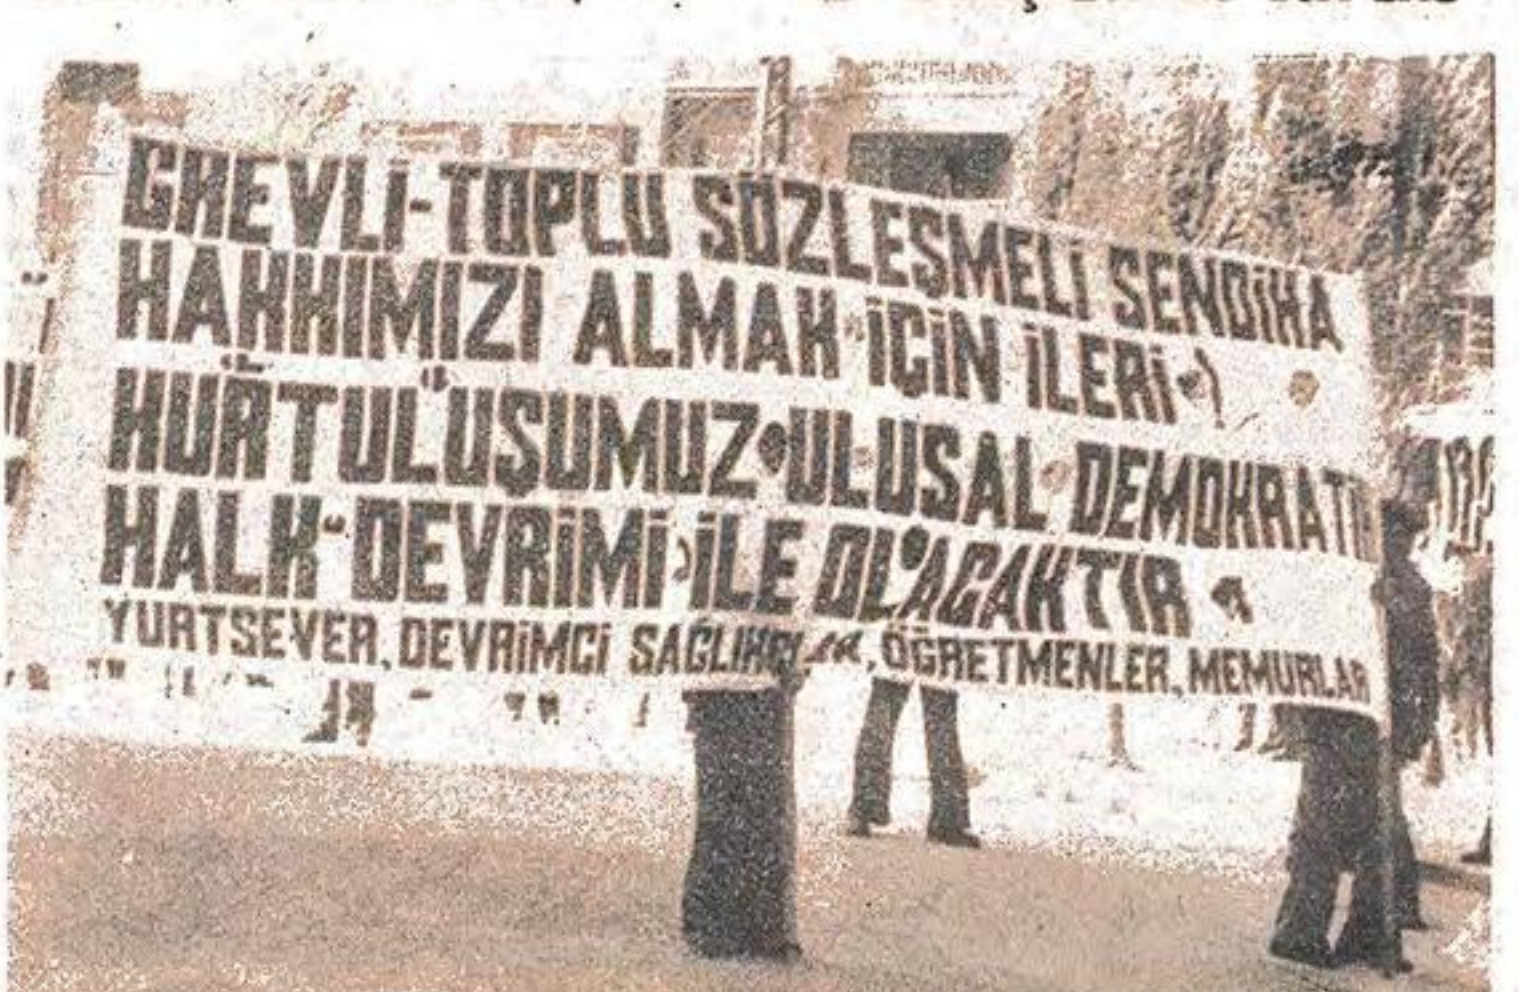 GREVLİ-TOPLU SÖZLEŞMELİ SENDİKA
HAKKIMIZI ALMAK İÇİN İLERİ
KURTULUŞUMUZ ULUSAL DEMOKRATİK
HALK DEVRİMİ İLE OLACAKTIR
YURTSEVER, DEVRİMCİ SAĞLIKÇILAR, ÖĞRETMENLER, MEMURLAR